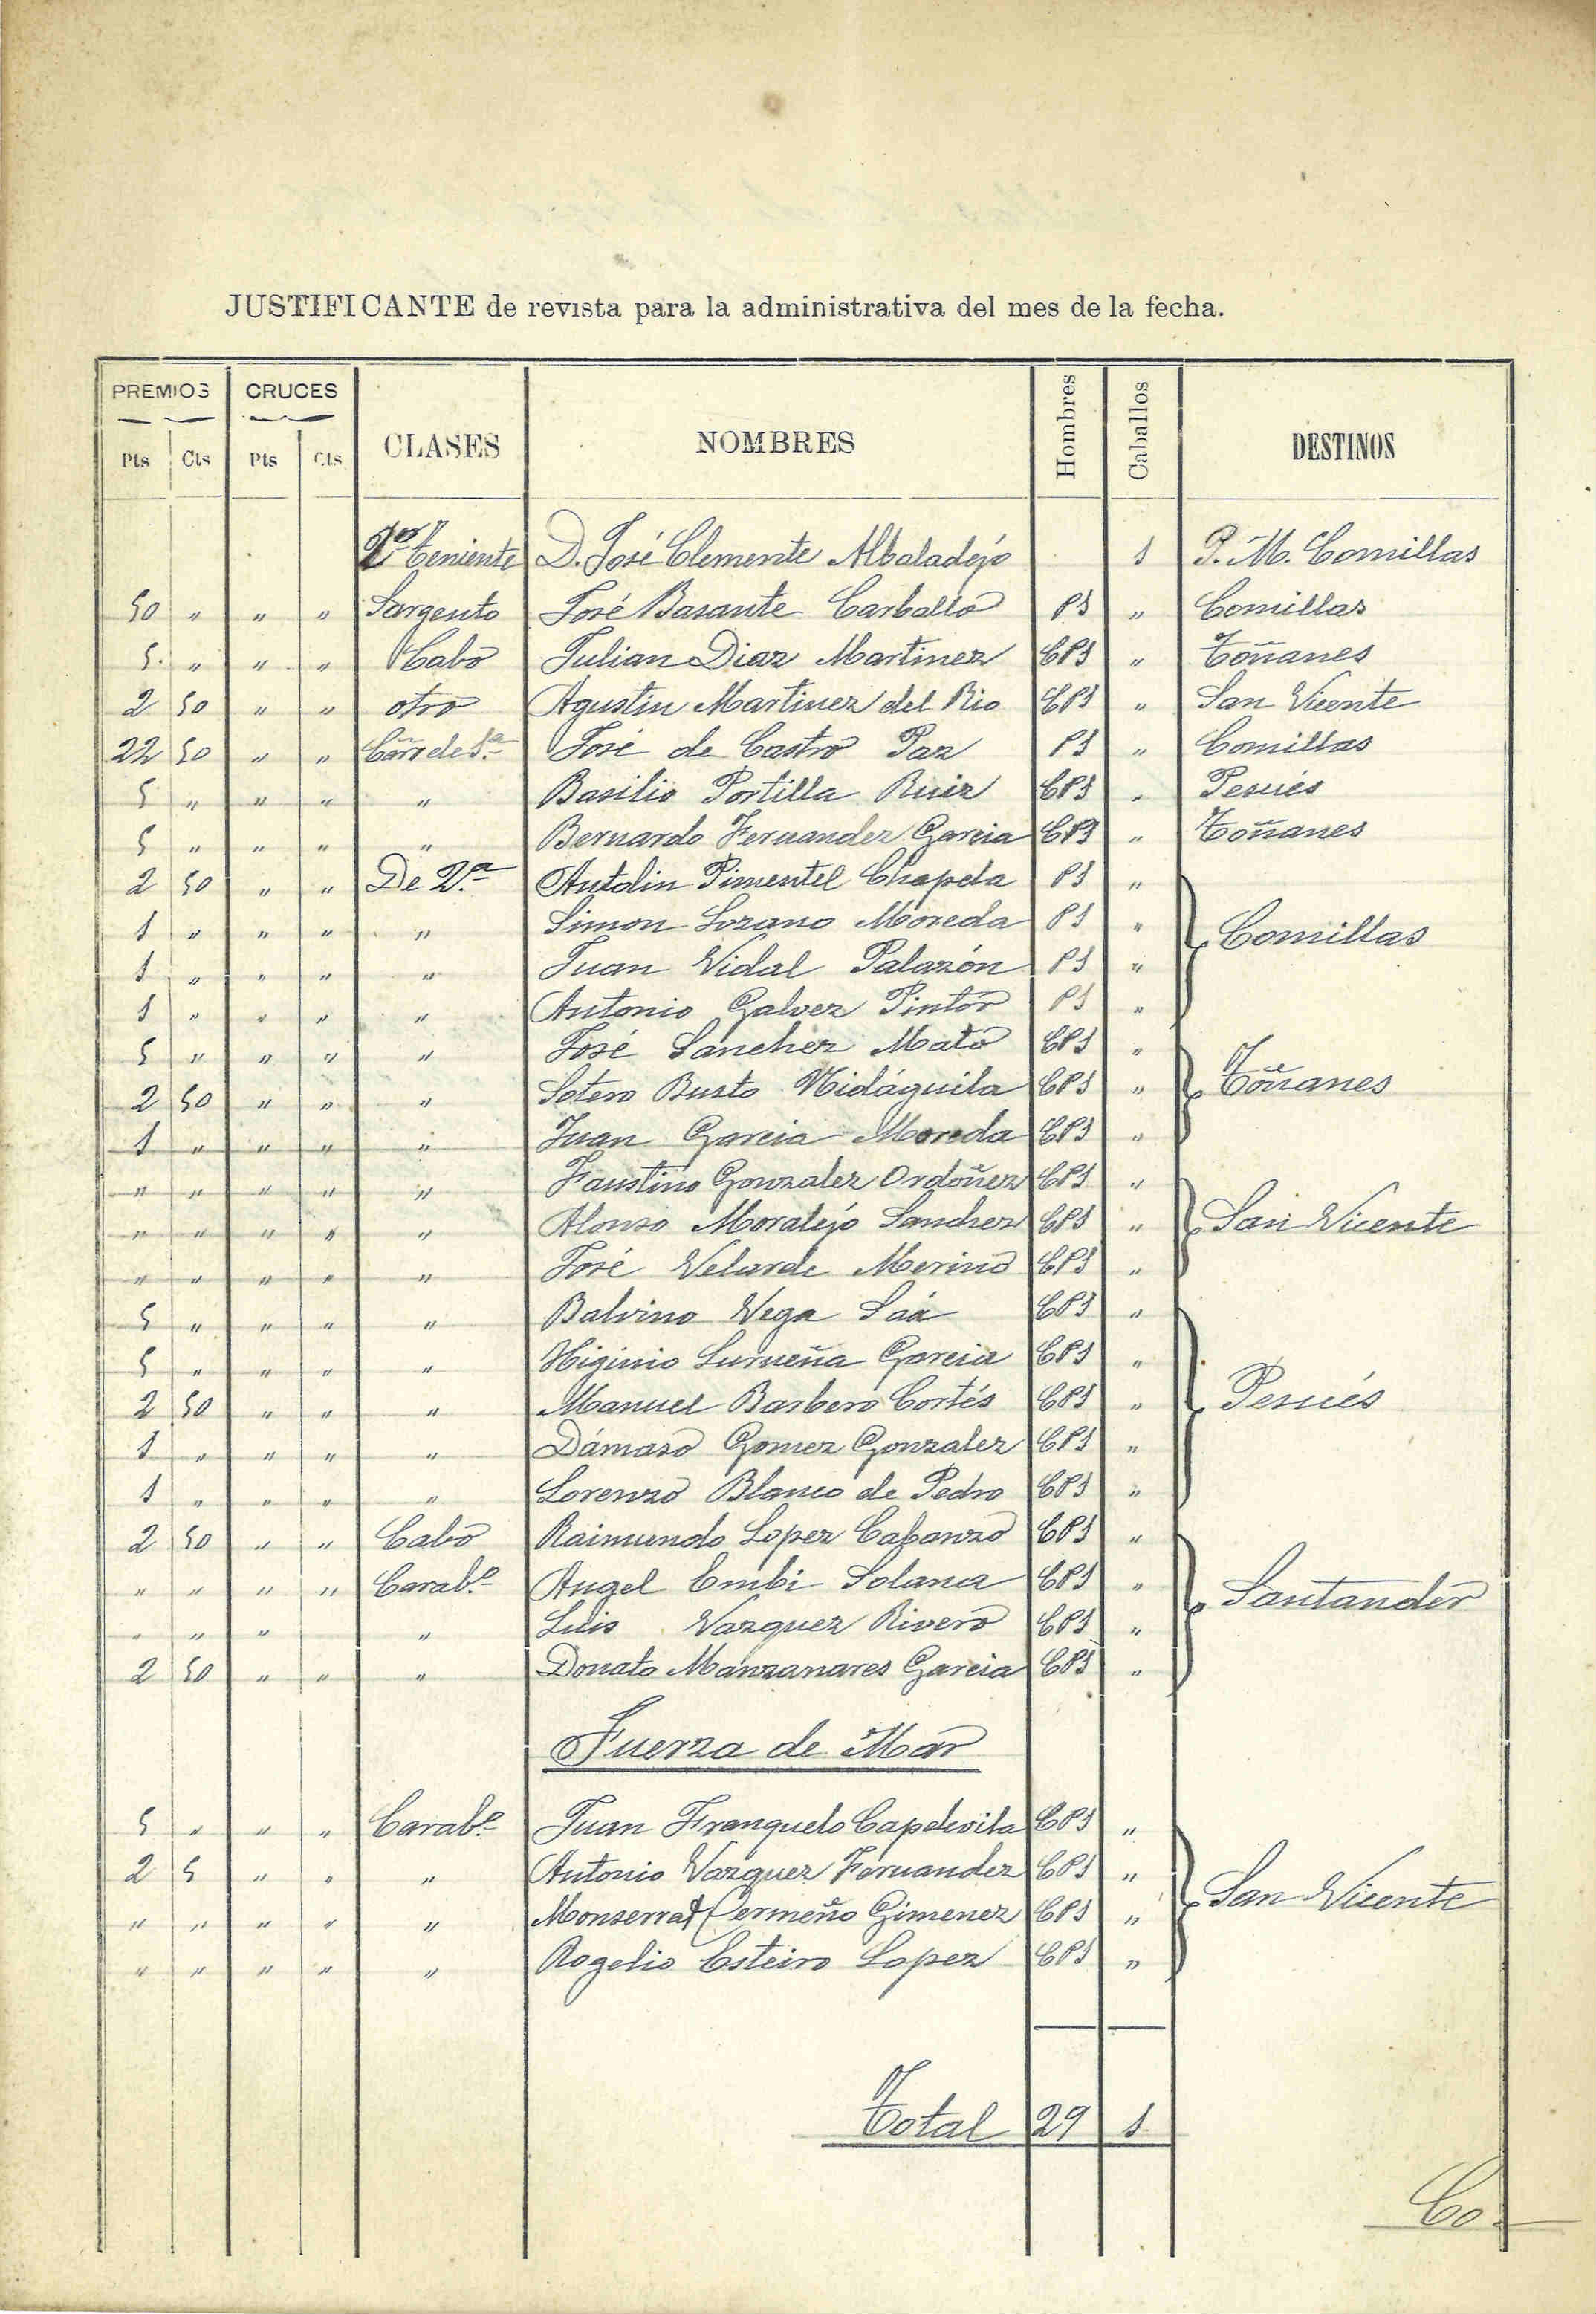 JUSTIFICANTE de revista para la administrativa del mes de la fecha.
PREMIOS CRUCES CLASES NOMBRES Hombres Caballos DESTINOS
Pts Cts Pts Cts
2º Teniente D. José Clemente Albaladejo 1 P. M. Comillas
50 " " " Sargento José Basante Carballo P1 " Comillas
5 " " " Cabo Julian Diaz Martinez CP1 " Toñanes
2 50 " " otro Agustin Martinez del Rio CP1 " San Vicente
22 50 " " Carª de 1ª José de Castro Paz P1 " Comillas
5 " " " " Basilio Portilla Ruiz CP1 " Pesués
5 " " " " Bernardo Fernandez Garcia CP1 " Toñanes
2 50 " " De 2ª Antolin Pimentel Chapela P1 "
1 " " " " Simon Lozano Moreda P1 " Comillas
1 " " " " Juan Vidal Palazón P1 "
1 " " " " Antonio Galvez Pintor P1 "
5 " " " " José Sanchez Mato CP1 "
2 50 " " " Sotero Busto Nidáguila CP1 " Toñanes
1 " " " " Juan Garcia Moreda CP1 "
" " " " " Faustino Gonzalez Ordoñez CP1 "
" " " " " Alonso Moralejo Sanchez CP1 " San Vicente
" " " " " José Velarde Merino CP1 "
5 " " " " Balvino Vega Sáa CP1 "
5 " " " " Higinio Lurueña Garcia CP1 "
2 50 " " " Manuel Barbero Cortés CP1 " Pesués
1 " " " " Dámaso Gomez Gonzalez CP1 "
1 " " " " Lorenzo Blanco de Pedro CP1 "
2 50 " " Cabo Raimundo Lopez Cabanzo CP1 "
" " " " Carabº Angel Embi Solana CP1 " Santander
" " " " Luis Vazquez Rivero CP1 "
2 50 " " " Donato Manzanares Garcia CP1 "
Fuerza de Mar
5 " " " Carabº Juan Franquelo Capdevila CP1 "
2 5 " " " Antonio Vazquez Fernandez CP1 "
" " " " " Monserrat Cermeño Gimenez CP1 " San Vicente
" " " " " Rogelio Esteiro Lopez CP1 "
Total 29 1
Co-